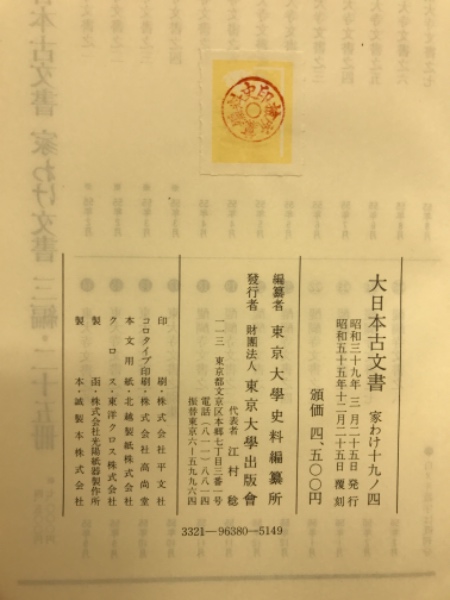 大日本古文書 家わけ十九ノ四
昭和三十九年 三 月二十五日 発行
昭和五十五年十二月二十五日 覆刻
頒価 四、五〇〇円
編纂者 東京大學史料編纂所
發行者 財團法人 東京大學出版會
代表者 江村 稔
一一三 東京都文京区本郷七丁目三番一号
電話(八一一)八八一四
振替東京六―五九九六四
印刷・株式会社 平文社
コロタイプ印刷・株式会社 高尚堂
本文用紙・北越製紙株式会社
クロス・東洋クロス株式会社
製函・株式会社光陽紙器製作所
製本・誠製本株式会社
3321―96380―5149